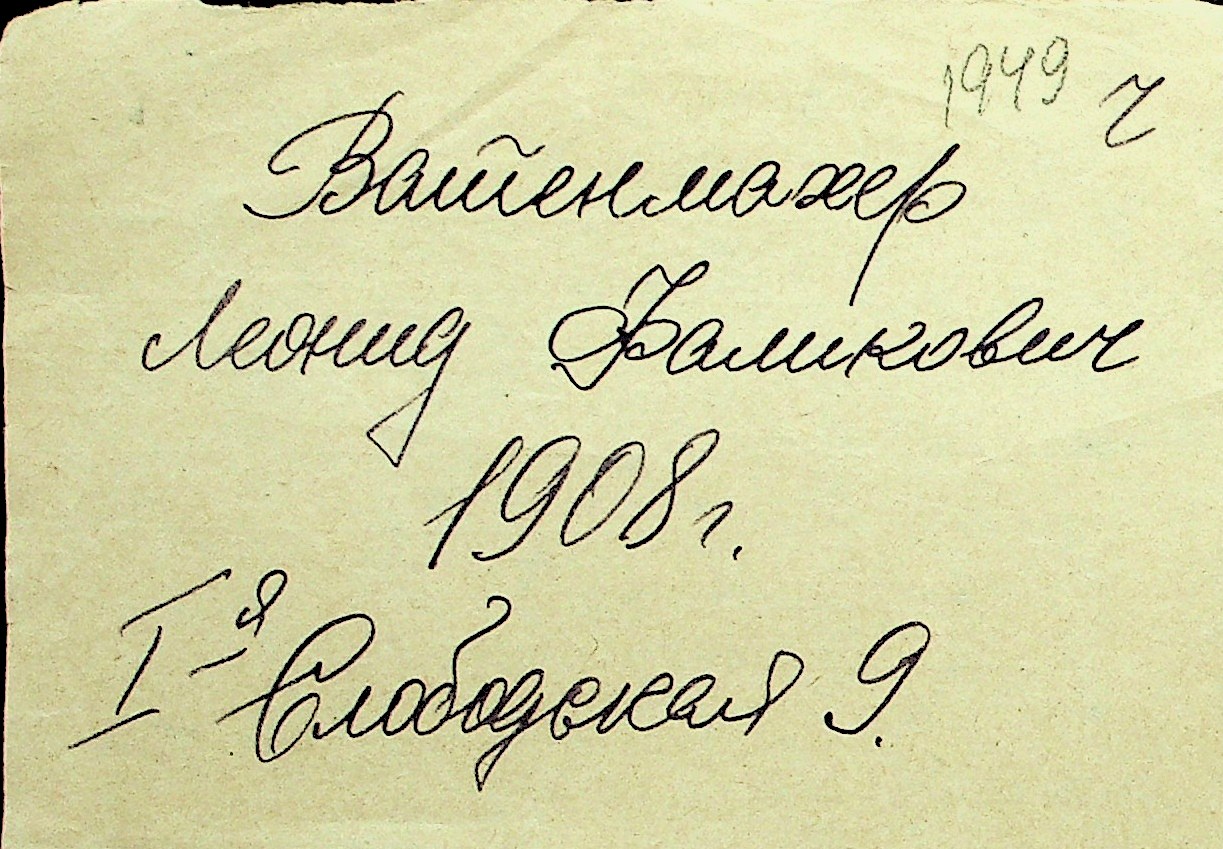 1949 ч
Вайтенмахер
Леонид Фаликович
1908 г.
I-я Слободская 9.